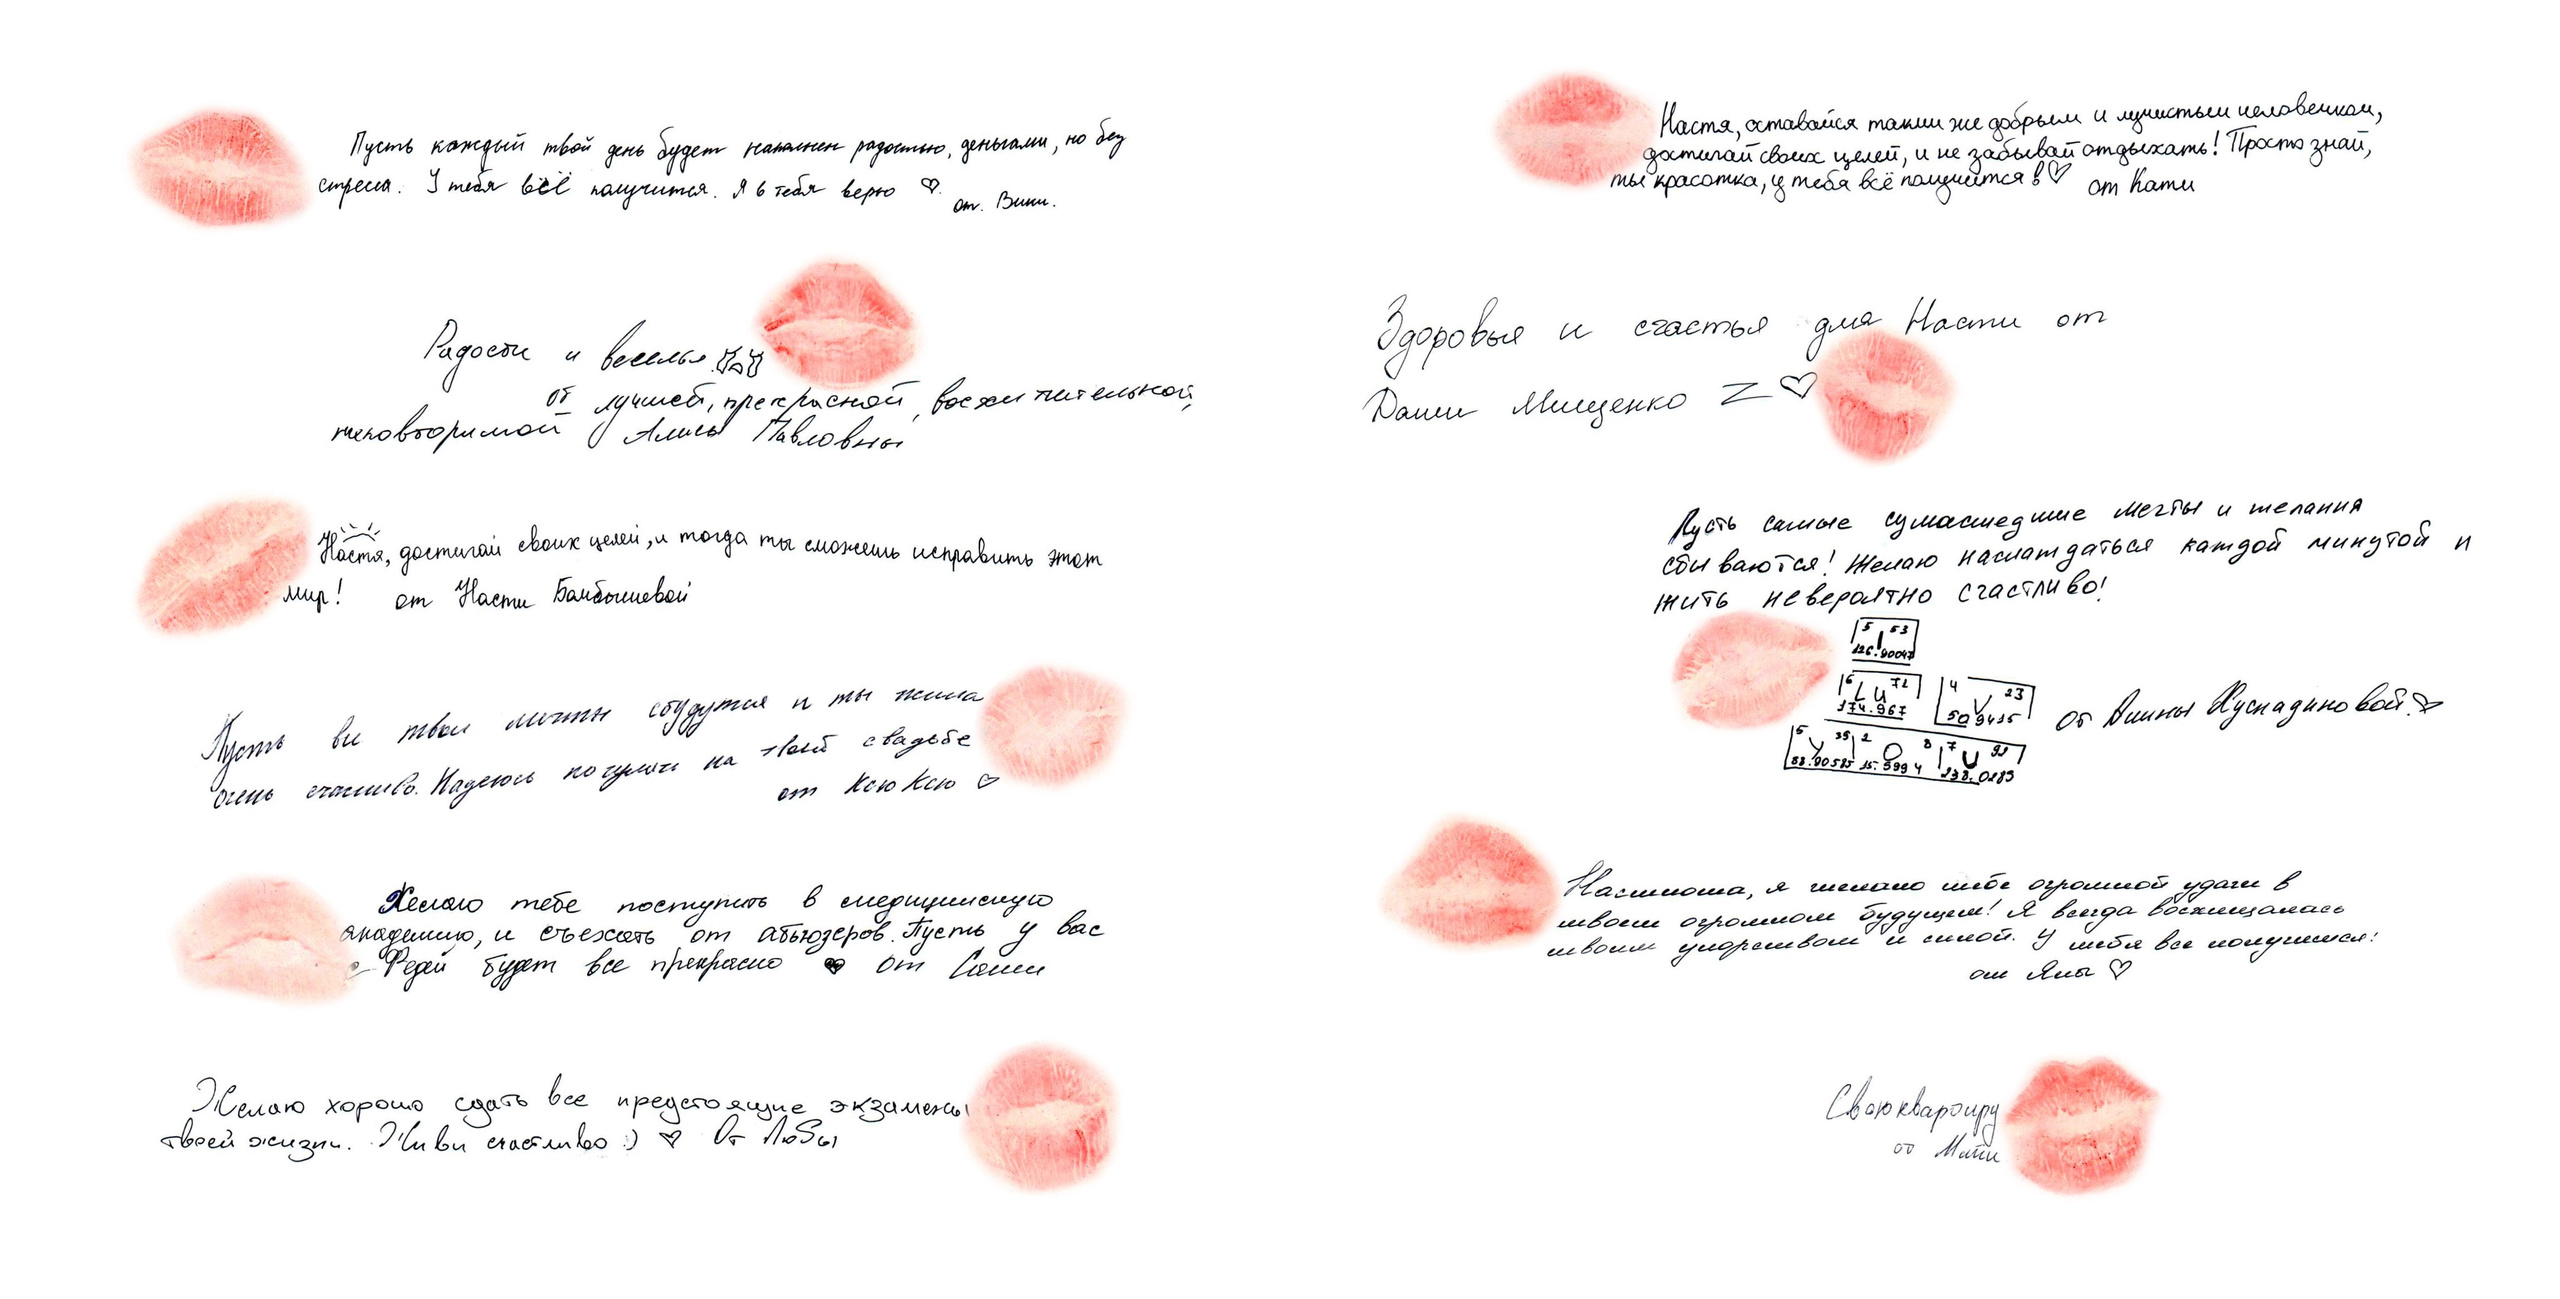 Пусть каждый твой день будет наполнен радостью, деньгами, но без
стресса. У тебя всё получится. Я в тебя верю ♡
от. Вики.
Радости и веселья
от лучшей, прекрасной, восхитительной,
неповторимой Алисы Павловны
Настя, достигай своих целей, и тогда ты сможешь исправить этот
мир! от Насти Бамбышевой
Пусть все твои мечты сбудутся и ты жила
очень счастливо. Надеюсь погулять на твоей свадьбе
от Ксю Ксю ♡
Желаю тебе поступить в медицинскую
академию, и съехать от абьюзеров. Пусть у вас
с Федей будет все прекрасно ♥ от Саши
Желаю хорошо сдать все предстоящие экзамены
твоей жизни. Живи счастливо :) ♡ От Любы
Настя, оставайся таким же добрым и лучистым человечком,
достигай своих целей, и не забывай отдыхать! Просто знай,
ты красотка, у тебя всё получится в ♡ от Кати
Здоровья и счастья для Насти от
Даши Мищенко Z ♡
Пусть самые сумасшедшие мечты и желания
сбываются! Желаю наслаждаться каждой минутой и
жить невероятно счастливо!
5 I 53
126.90047
6 Lu 71 4 V 23
174.967 50.9415 от Алины
5 Y 39 2 O 8 7 U 92
88.90585 15.9994 238.0289
Настюша, я желаю тебе огромной удачи в
твоем огромном будущем! Я всегда восхищалась
твоим упорством и силой. У тебя все получится!
от Яны ♡
Свою квартиру
от Мити